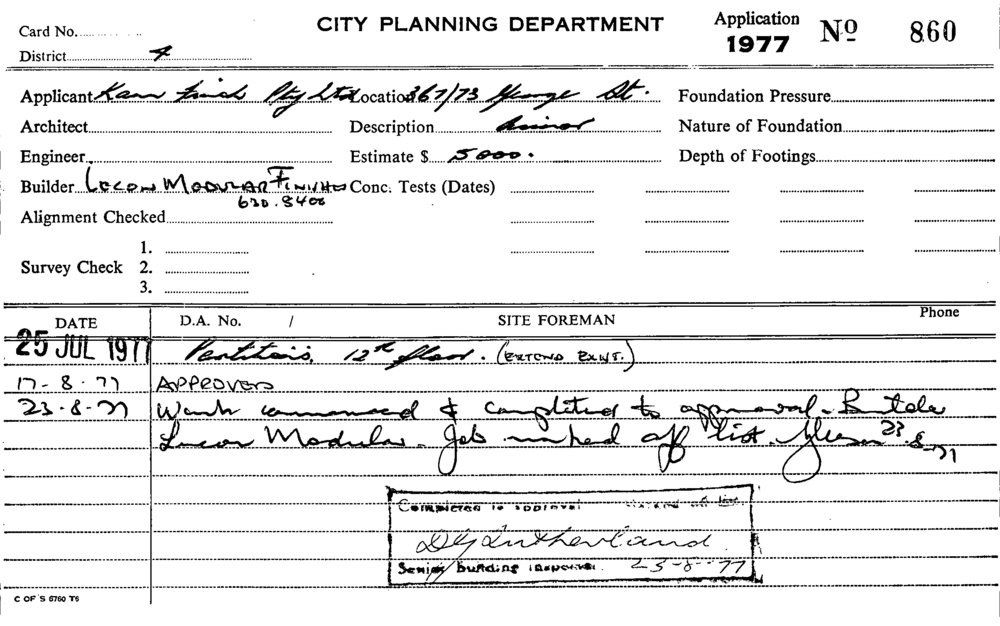 CITY PLANNING DEPARTMENT
Application 1977 No 860
Card No.
District 4
Applicant Pty Ltd Location 367/73 George St. Foundation Pressure
Architect Description Minor Nature of Foundation
Engineer Estimate $ 5000. Depth of Footings
Builder Lucon Modular Finishes Conc. Tests (Dates)
630.8400
Alignment Checked
1.
Survey Check 2.
3.
DATE D.A. No. / SITE FOREMAN Phone
25 JUL 1977 Partitions, 12th floor. (EXTEND EXIST.)
17-8-77 APPROVED
23-8-77 Work commenced & completed to approval. Builder
Lucon Modular. Job marked off list. 23-8-77
Completed to approval marked off list
D G Sutherland
Senior building inspector. 23-8-77
C OF S 6760 T6